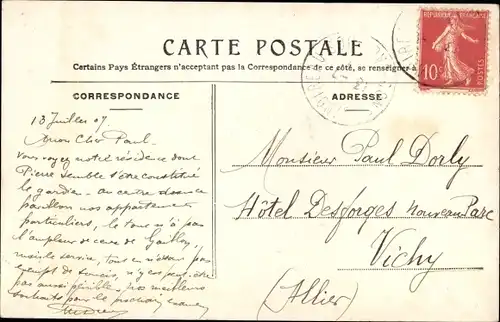 CARTE POSTALE
Certains Pays Étrangers n'acceptant pas la Correspondance de ce côté, se renseigner à
CORRESPONDANCE
ADRESSE
RÉPUBLIQUE FRANÇAISE
10c
POSTES
13 Juillet 07
Mon Cher Paul
Vous voyez notre résidence dont
Pierre semble s'être constitué
le gardien. au centre
pavillon nos appartements
particuliers, le tout n'a pas
l'ampleur de ceux de Gaillon,
mais le service, tout en n'étant pas
exempt de soucis, n'y est peut-être
pas aussi pénible. nos meilleurs
souhaits pour le prochain
Monsieur Paul Dorly
Hôtel Desforges nouveau Parc
Vichy
(Allier)